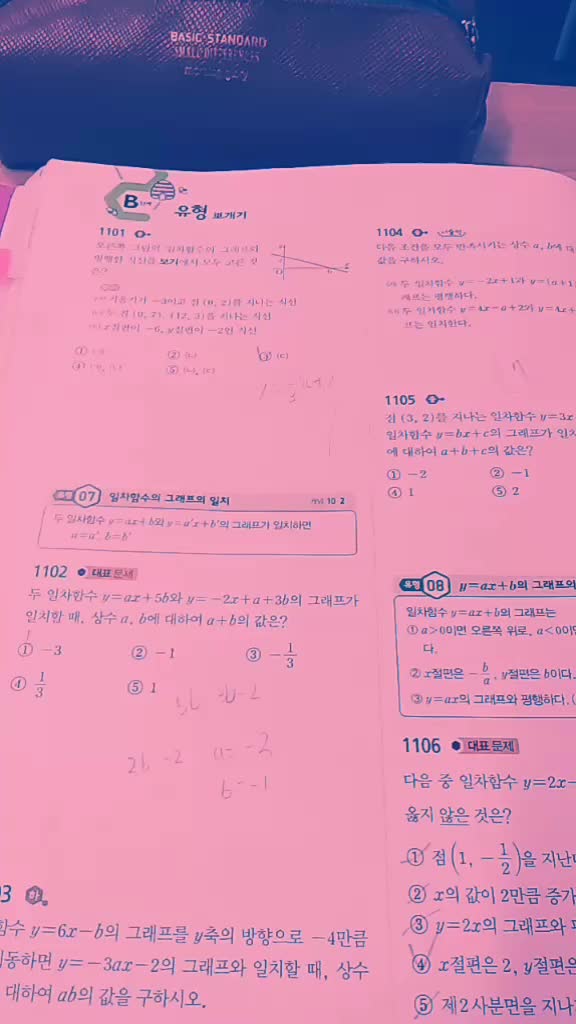 BASIC-STANDARD
B 단계
유형 뽀개기
1101 중
오른쪽 그림의 일차함수의 그래프와
평행한 직선을 보기에서 모두 고른 것
은?
보기
기울기가 -3이고 점 (0, 2)를 지나는 직선
두 점 (0, 7), (12, 3)을 지나는 직선
x절편이 -6, y절편이 -2인 직선
①
②
③
④
⑤
유형 07 일차함수의 그래프의 일치 개념 10-2
두 일차함수 y=ax+b와 y=a'x+b'의 그래프가 일치하면
a=a', b=b'
1102 대표 문제
두 일차함수 y=ax+5b와 y=-2x+a+3b의 그래프가
일치할 때, 상수 a, b에 대하여 a+b의 값은?
① -3 ② -1 ③ -1/3
④ 1/3 ⑤ 1
2b -2 a= -2
b= -1
03 하
함수 y=6x-b의 그래프를 y축의 방향으로 -4만큼
이동하면 y=-3ax-2의 그래프와 일치할 때, 상수
대하여 ab의 값을 구하시오.
1104 중 서술형
다음 조건을 모두 만족시키는 상수 a, b에 대
값을 구하시오.
두 일차함수 y=-2x+1과 y=(a+1)
래프는 평행하다.
두 일차함수 y=4x-a+2과 y=4x+
프는 일치한다.
1105 중
점 (3, 2)를 지나는 일차함수 y=3x
일차함수 y=bx+c의 그래프가 일치
에 대하여 a+b+c의 값은?
① -2 ② -1
④ 1 ⑤ 2
유형 08 y=ax+b의 그래프의
일차함수 y=ax+b의 그래프는
① a>0이면 오른쪽 위로, a<0이면
다.
② x절편은 -b/a, y절편은 b이다.
③ y=ax의 그래프와 평행하다. (
1106 대표 문제
다음 중 일차함수 y=2x-
옳지 않은 것은?
① 점 (1, -1/2)을 지난다
② x의 값이 2만큼 증가
③ y=2x의 그래프와 평
④ x절편은 2, y절편은
⑤ 제2사분면을 지나